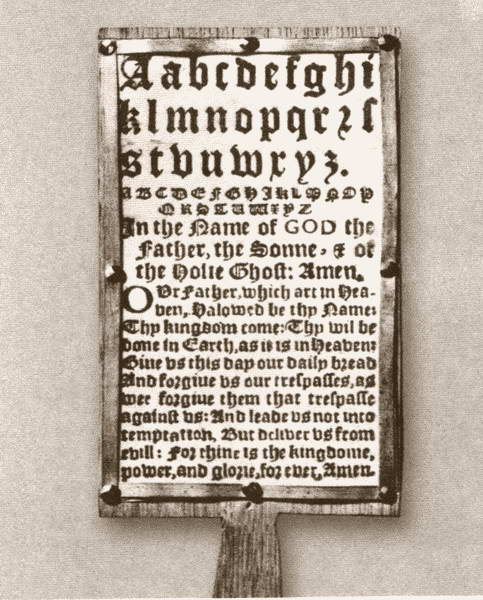 Aabcdefghi
klmnopqrꝛſ
stvuwxyz.
ABCDEFGHIKLMNOP
QRSTUWXYZ
In the Name of GOD the
Father, the Sonne, & of
the Holie Ghost: Amen.
OVr Father, which art in Hea-
ven, Halowed be thy Name:
Thy kingdom come: Thy wil be
done in Earth, as it is in Heaven:
Giue vs this day our daily bread
And forgiue vs our trespasses, as
wee forgiue them that trespasse
against vs: And leade vs not into
temptation, But deliver vs from
evill: For thine is the kingdome,
power, and glorie, for ever, Amen.